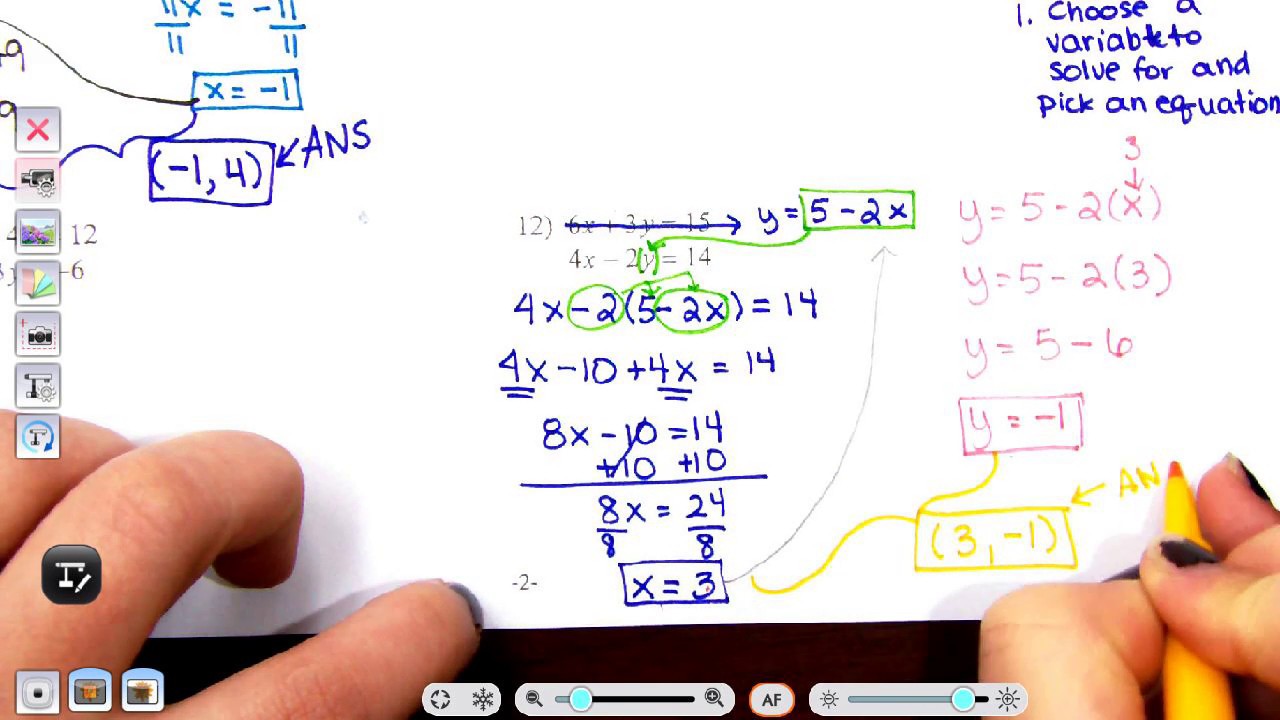 11x = -11
11 11
x = -1
(-1, 4) ← ANS
12
-6
1. Choose a
variable to
solve for and
pick an equation
12) 6x + 3y = 15 → y = 5 - 2x
4x - 2(y) = 14
4x - 2(5 - 2x) = 14
4x - 10 + 4x = 14
8x - 10 = 14
+10 +10
8x = 24
8 8
x = 3
-2-
3
↓
y = 5 - 2(x)
y = 5 - 2(3)
y = 5 - 6
y = -1
(3, -1) ← AN
AF